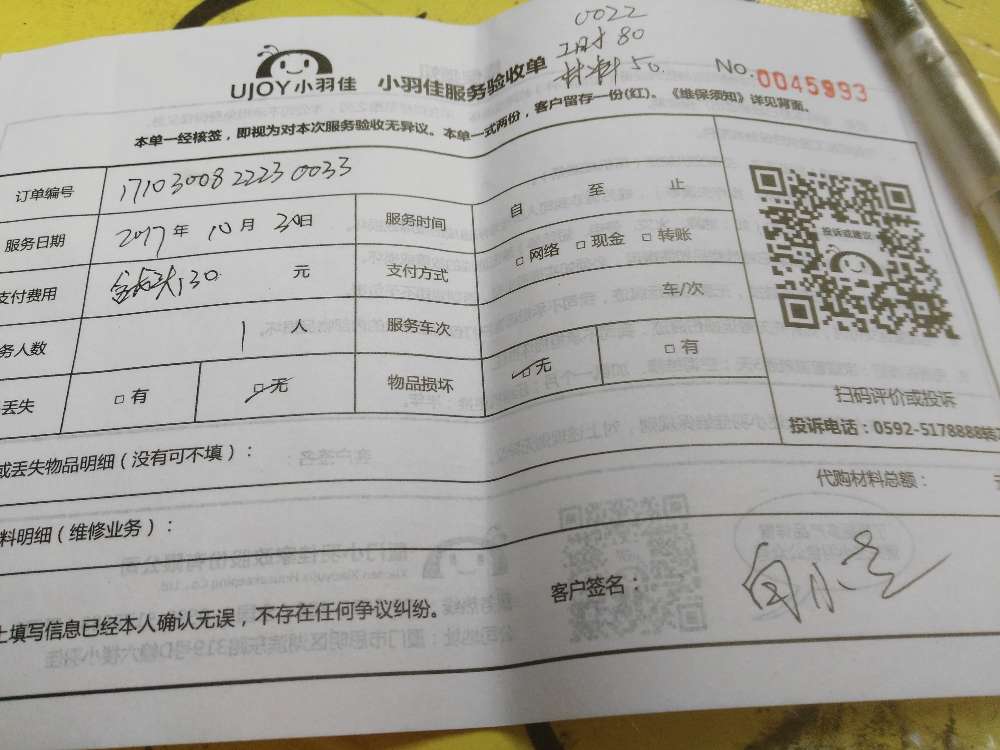 0022
工时 80
材料 50
UJOY小羽佳 小羽佳服务验收单 No. 0045993
本单一经核签，即视为对本次服务验收无异议。本单一式两份，客户留存一份(红)。《维保须知》详见背面。
订单编号 171030082223 0033
服务日期 2017 年 10 月 30日 服务时间 自 至 止
支付费用 130 元 支付方式 □ 网络 □ 现金 □ 转账
务人数 1 人 服务车次 车/次
丢失 □ 有 □ 无 物品损坏 □ 无 □ 有
投诉或建议
扫码评价或投诉
投诉电话：0592-5178888转
或丢失物品明细（没有可不填）：
代购材料总额：
料明细（维修业务）：
客户签名：
上填写信息已经本人确认无误，不存在任何争议纠纷。